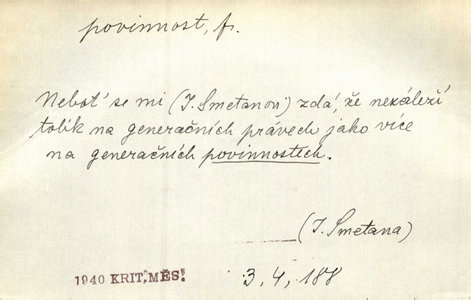 povinnost, f.
Neboť se mi (J. Smetanovi) zdá, že nezáleží
tolik na generačních právech jako více
na generačních povinnostech.
(J. Smetana)
1940 KRIT. MĚS. 3, 4, 188